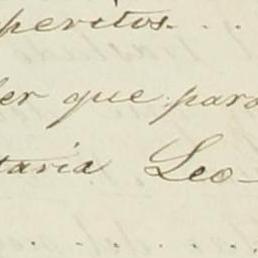 peritos. . .
er que para
taria Leo-
. . . . .